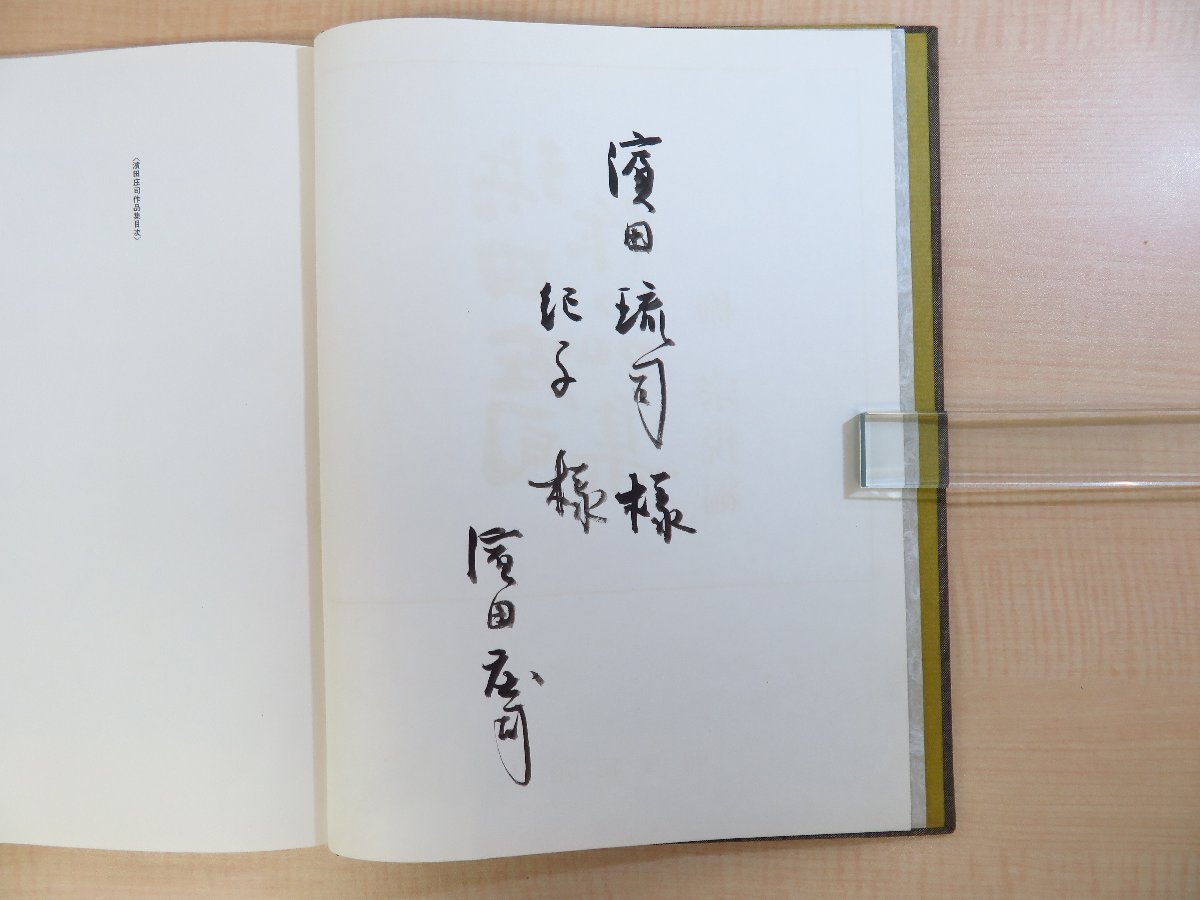 濱田琉司様
紀子様
濱田庄司
〈濱田庄司作品集目次〉